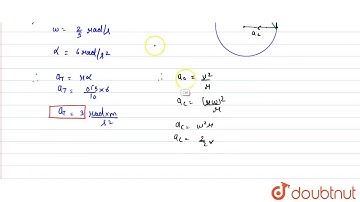 ω = 2/3 rad/s
α = 6 rad/s²
∴ a_T = rα
a_T = × 6
a_T = 3 rad×m/s²
a_c
∴ a_c = v²/r
a_c = (rω)²/r
a_c = ω²r
a_c =
doubtnut